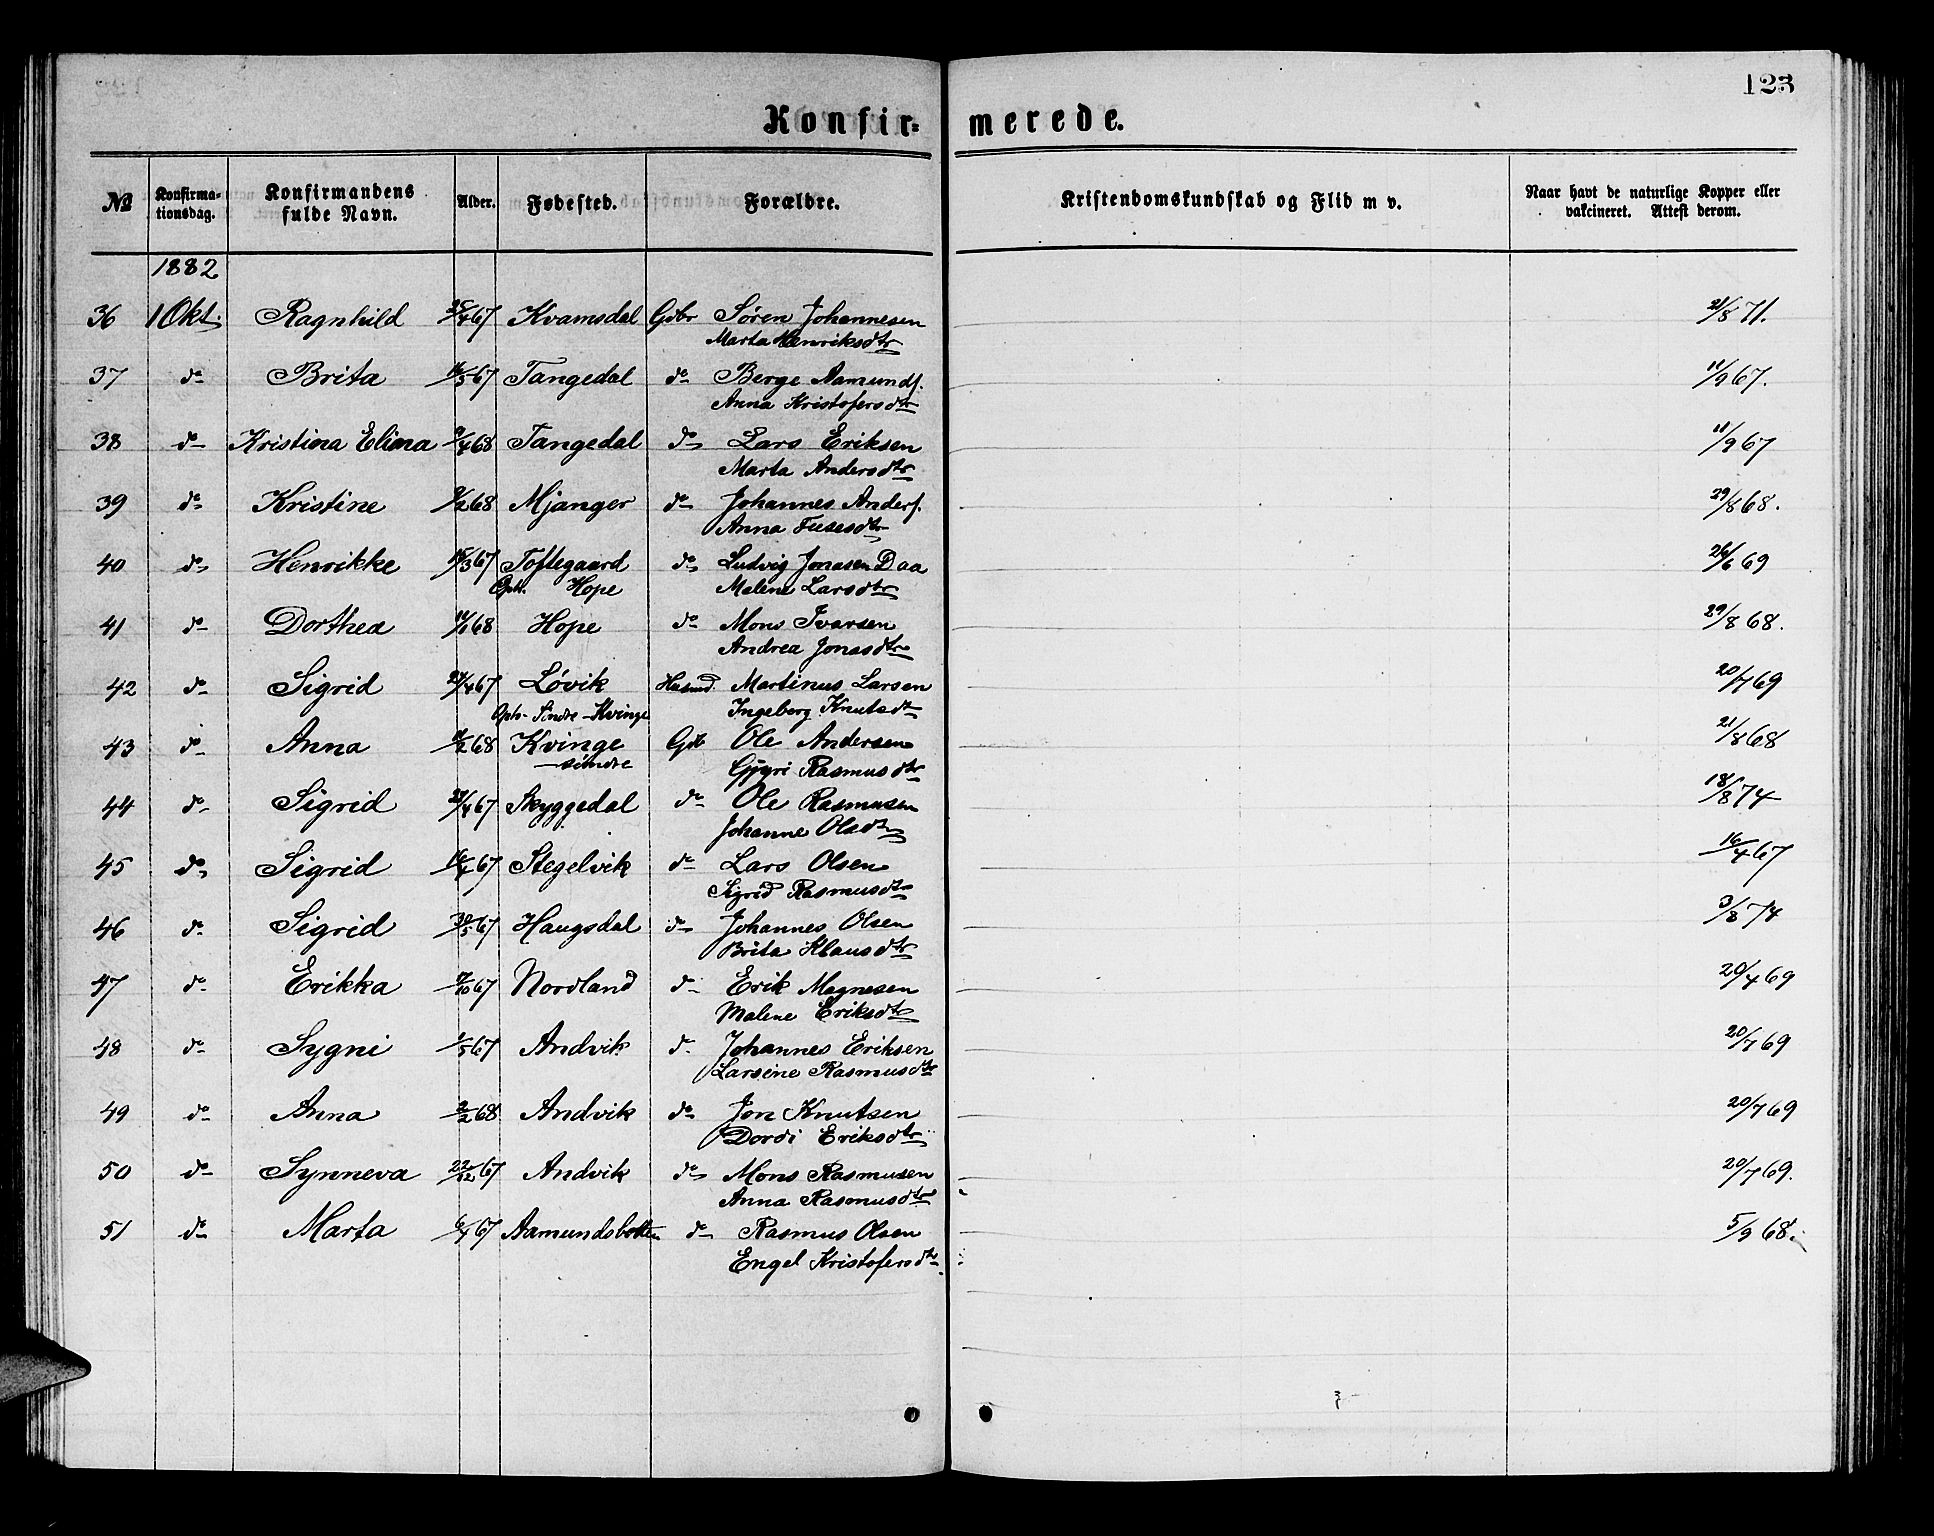 123
Konfir= merede.
№ Konfirma-tionsdag. Konfirmandens fulde Navn. Alder. Fødested. Forældre. Kristendomskundskab og Flid m v. Naar havt de naturlige Kopper eller vakcineret. Attest derom.
1882
36 1 Okt. Ragnhild 25/4 67 Kvamsdal Gdbr Søren Johannesen 21/8 71.
Marta Henriksdtr
37 do Brita 11/5 67 Tangedal do Berge Aamundf. 11/9 67.
Anna Kristofersdtr
38 do Kristina Elina 9/4 68 Tangedal do Lars Eriksen 11/9 67
Marta Andersdtr
39 do Kristine 9/2 68 Mjanger do Johannes Anderf. 29/8 68.
Anna
40 do Henrikke 15/3 67 Toftegaard do Ludvig Jonasen Daa 26/6 69
Oph. Hope Malene Larsdtr
41 do Dorthea 11/1 68 Hope do Mons Ivarsen 29/8 68.
Andrea Jonasdtr
42 do Sigrid 27/4 67 Løvik Husmd. Martinus Larsen 20/7 69
Oph. Sindre-Kvinge Ingeborg Knutsdtr
43 do Anna /2 68 Kvinge Gdb Ole Andersen 21/8 68
søndre Gjyri Rasmusdtr
44 do Sigrid /4 67 Skyggedal do Ole Rasmusen 18/8 74
Johanne Olsdtr
45 do Sigrid 67 Stegelvik do Lars Olsen 16/4 67
Sigrid Rasmusdtr
46 do Sigrid 30/5 67 Haugsdal do Johannes Olsen 3/8 74
Brita Klausdtr
47 do Erikka /10 67 Nordland do Erik Magnesen 20/4 69
Malene Eriksdtr
48 do Sygni 1/5 67 Andvik do Johannes Eriksen 20/7 69
Larsine Rasmusdtr
49 do Anna 2/2 68 Andvik do Jon Knutsen 20/7 69
Dordi Eriksdtr
50 do Synneva 22/12 67 Andvik do Mons Rasmusen 20/7 69.
Anna Rasmusdtr
51 do Marta 6/4 67 Aamundsbotten do Rasmus Olsen 5/9 68.
Engel Kristofersdtr